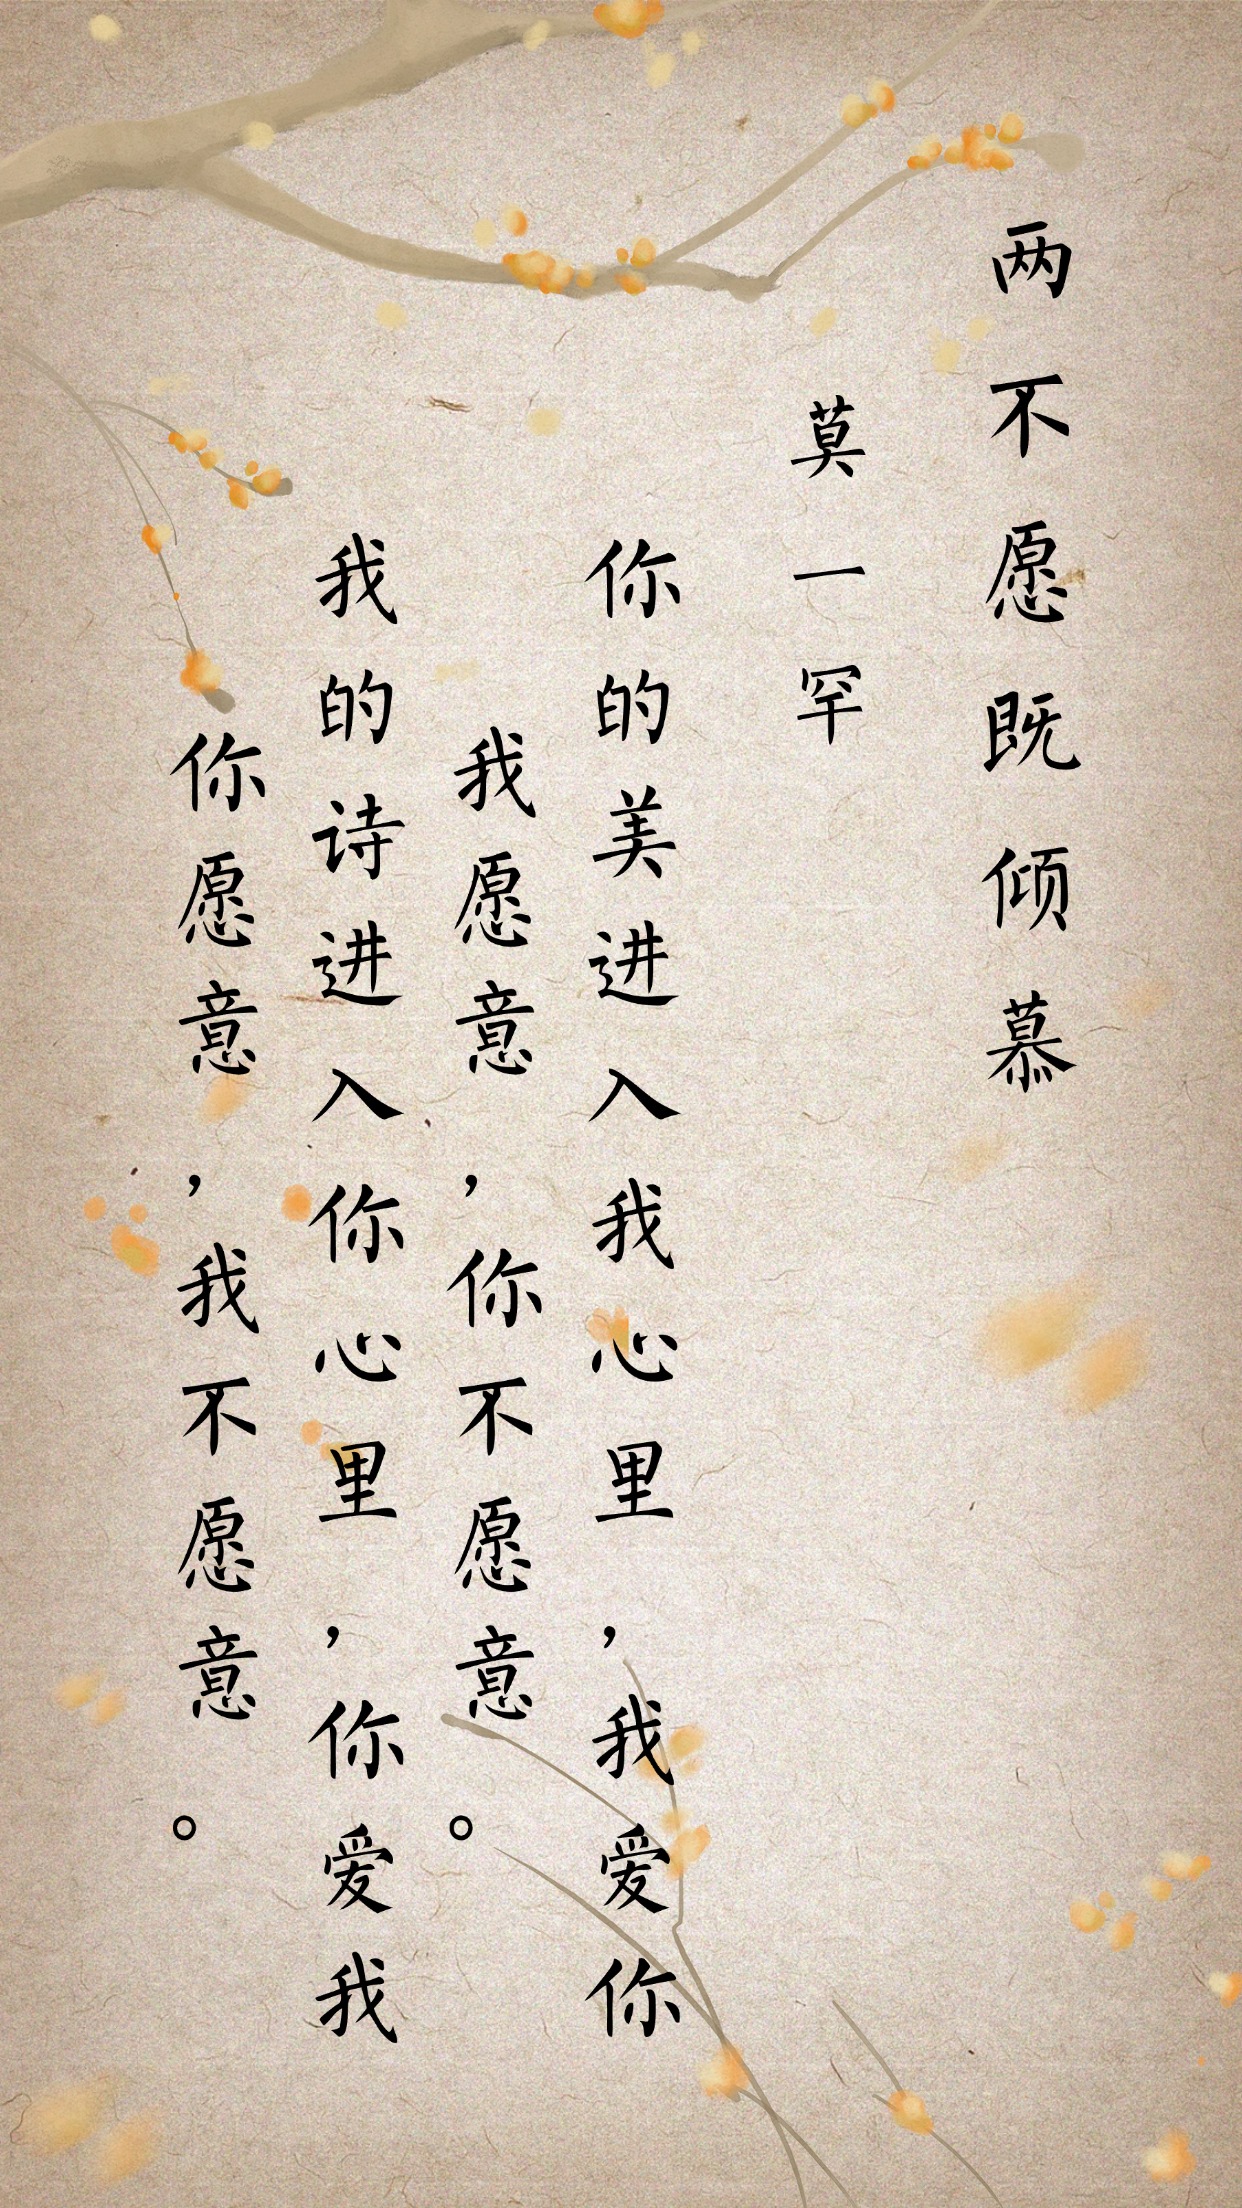 两不愿既倾慕
莫一罕
你的美进入我心里，我爱你
我愿意，你不愿意。
我的诗进入你心里，你爱我
你愿意，我不愿意。